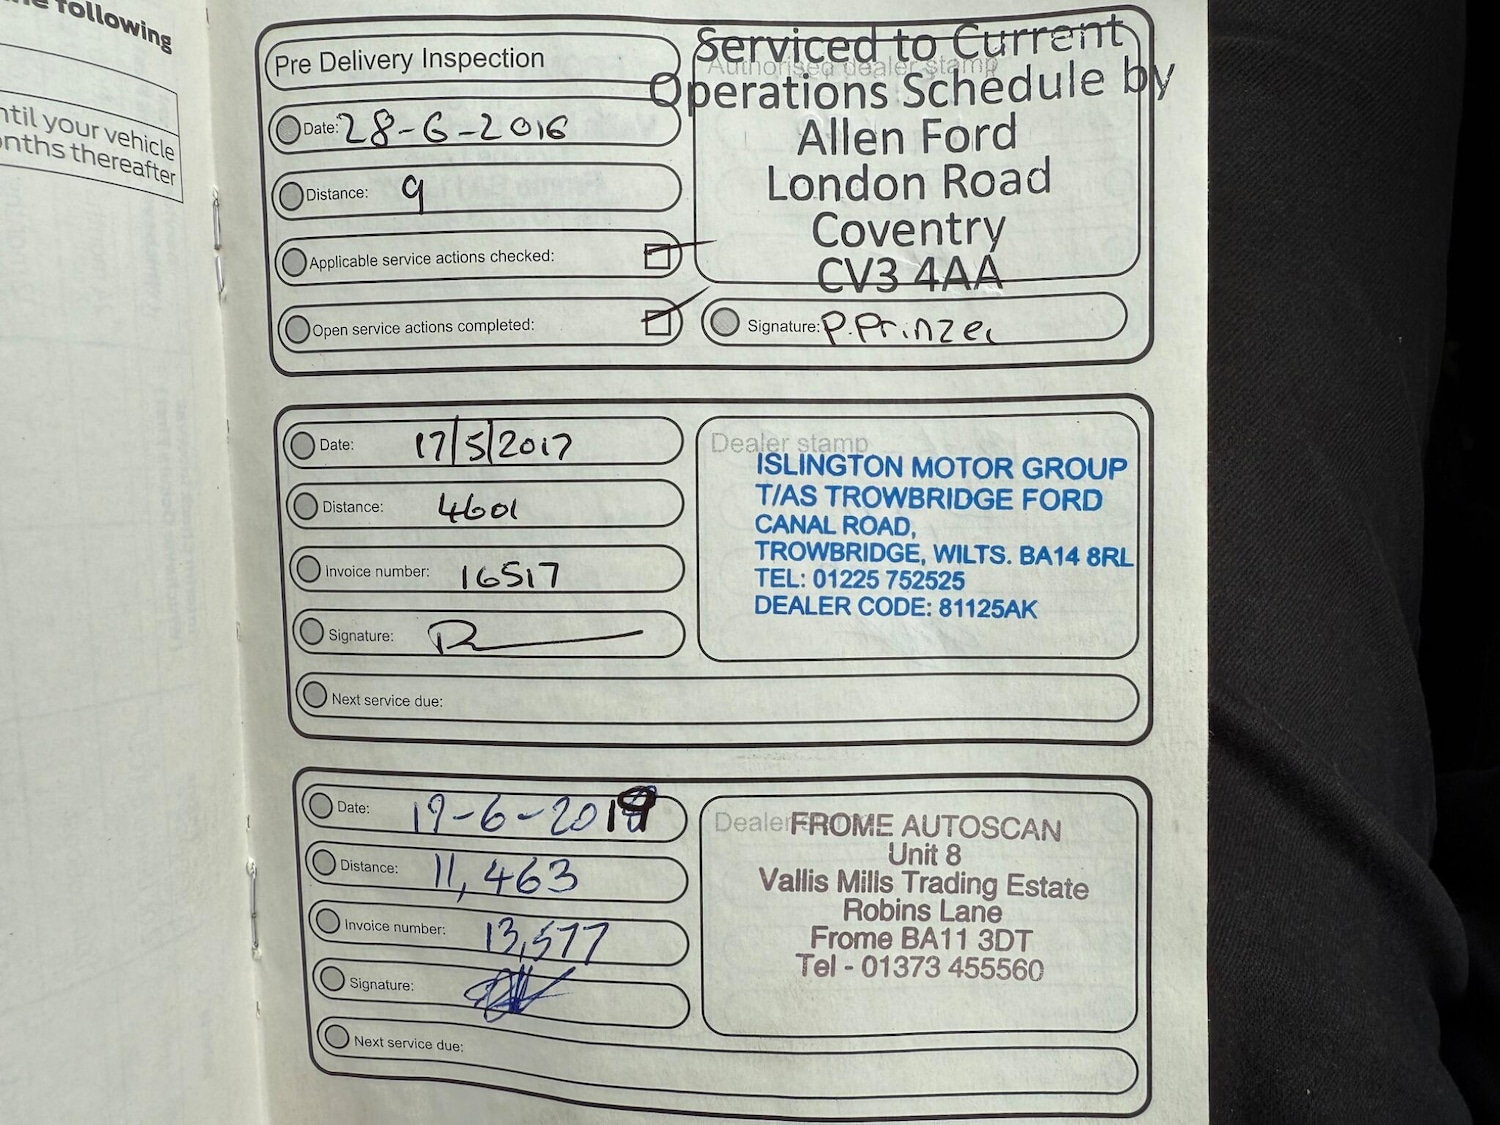 he following
ntil your vehicle
onths thereafter
Pre Delivery Inspection
Date: 28-6-2016
Distance: 9
Applicable service actions checked:
Open service actions completed:
Authorised dealer stamp
Serviced to Current
Operations Schedule by
Allen Ford
London Road
Coventry
CV3 4AA
Signature: P.Prinzer
Date: 17/5/2017
Distance: 4601
Invoice number: 16517
Signature:
Next service due:
Dealer stamp
ISLINGTON MOTOR GROUP
T/AS TROWBRIDGE FORD
CANAL ROAD,
TROWBRIDGE, WILTS. BA14 8RL
TEL: 01225 752525
DEALER CODE: 81125AK
Date: 19-6-2019
Distance: 11,463
Invoice number: 13,577
Signature:
Next service due:
Dealer
FROME AUTOSCAN
Unit 8
Vallis Mills Trading Estate
Robins Lane
Frome BA11 3DT
Tel - 01373 455560